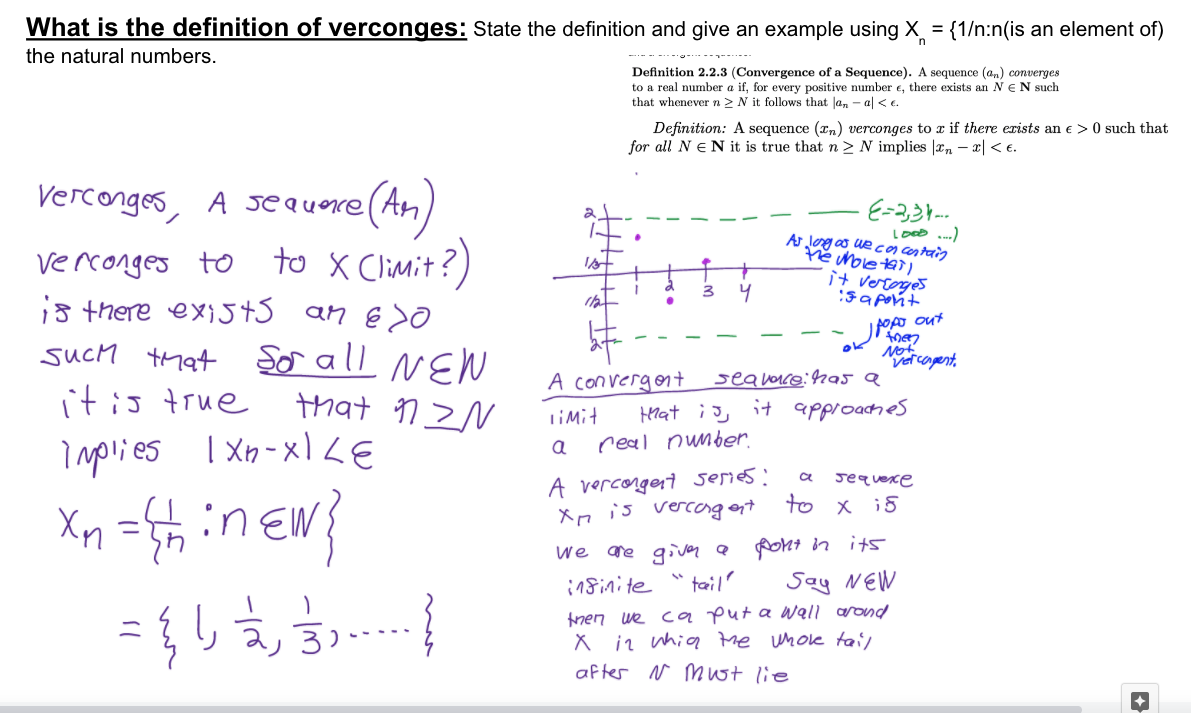 What is the definition of verconges: State the definition and give an example using X_n = {1/n:n(is an element of)
the natural numbers.
Definition 2.2.3 (Convergence of a Sequence). A sequence (a_n) converges
to a real number a if, for every positive number ϵ, there exists an N ∈ N such
that whenever n ≥ N it follows that |a_n − a| < ϵ.
Definition: A sequence (x_n) verconges to x if there exists an ϵ > 0 such that
for all N ∈ N it is true that n ≥ N implies |x_n − x| < ϵ.
Verconges, A sequence (An)
verconges to to X (limit?)
is there exists an ϵ>0
such that for all N∈N
it is true that n≥N
implies |Xn-x|<ϵ
Xn = {1/n : n∈N}
= {1, 1/2, 1/3, ......}
2
1
1/2
1 2 3 4
1/2
1
2
ϵ=2,3,...
1000 ...)
As long as we can contain
the whole tail,
it verconges
is a point
pops out
then
Not
vercongent.
A convergent sequence: has a
limit that is, it approaches
a real number.
A vercongent series: a sequence
Xn is vercongent to x is
we are given a point in its
infinite "tail" Say N∈N
then we ca put a wall around
X in which the whole tail
after N must lie